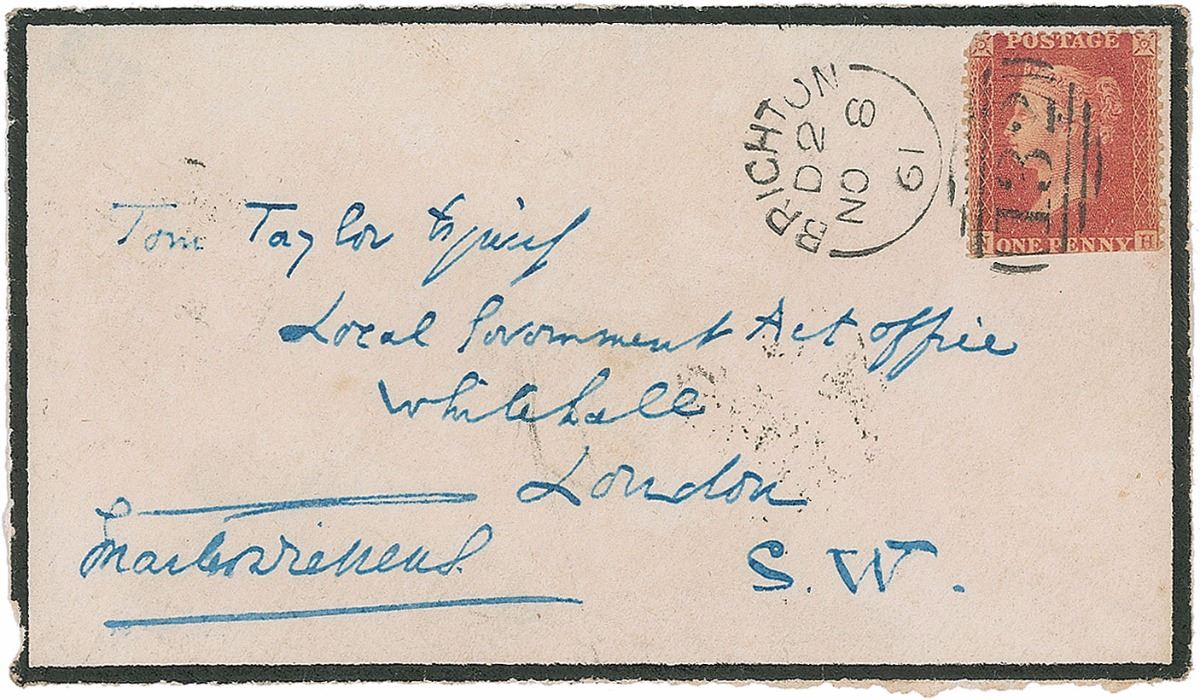 POSTAGE
BRIGHTON
D2
NO 8
61
132
N ONE PENNY H
Tom Taylor Esquire
Local Government Act Office
Whitehall
London
S.W.
Charles Dickens